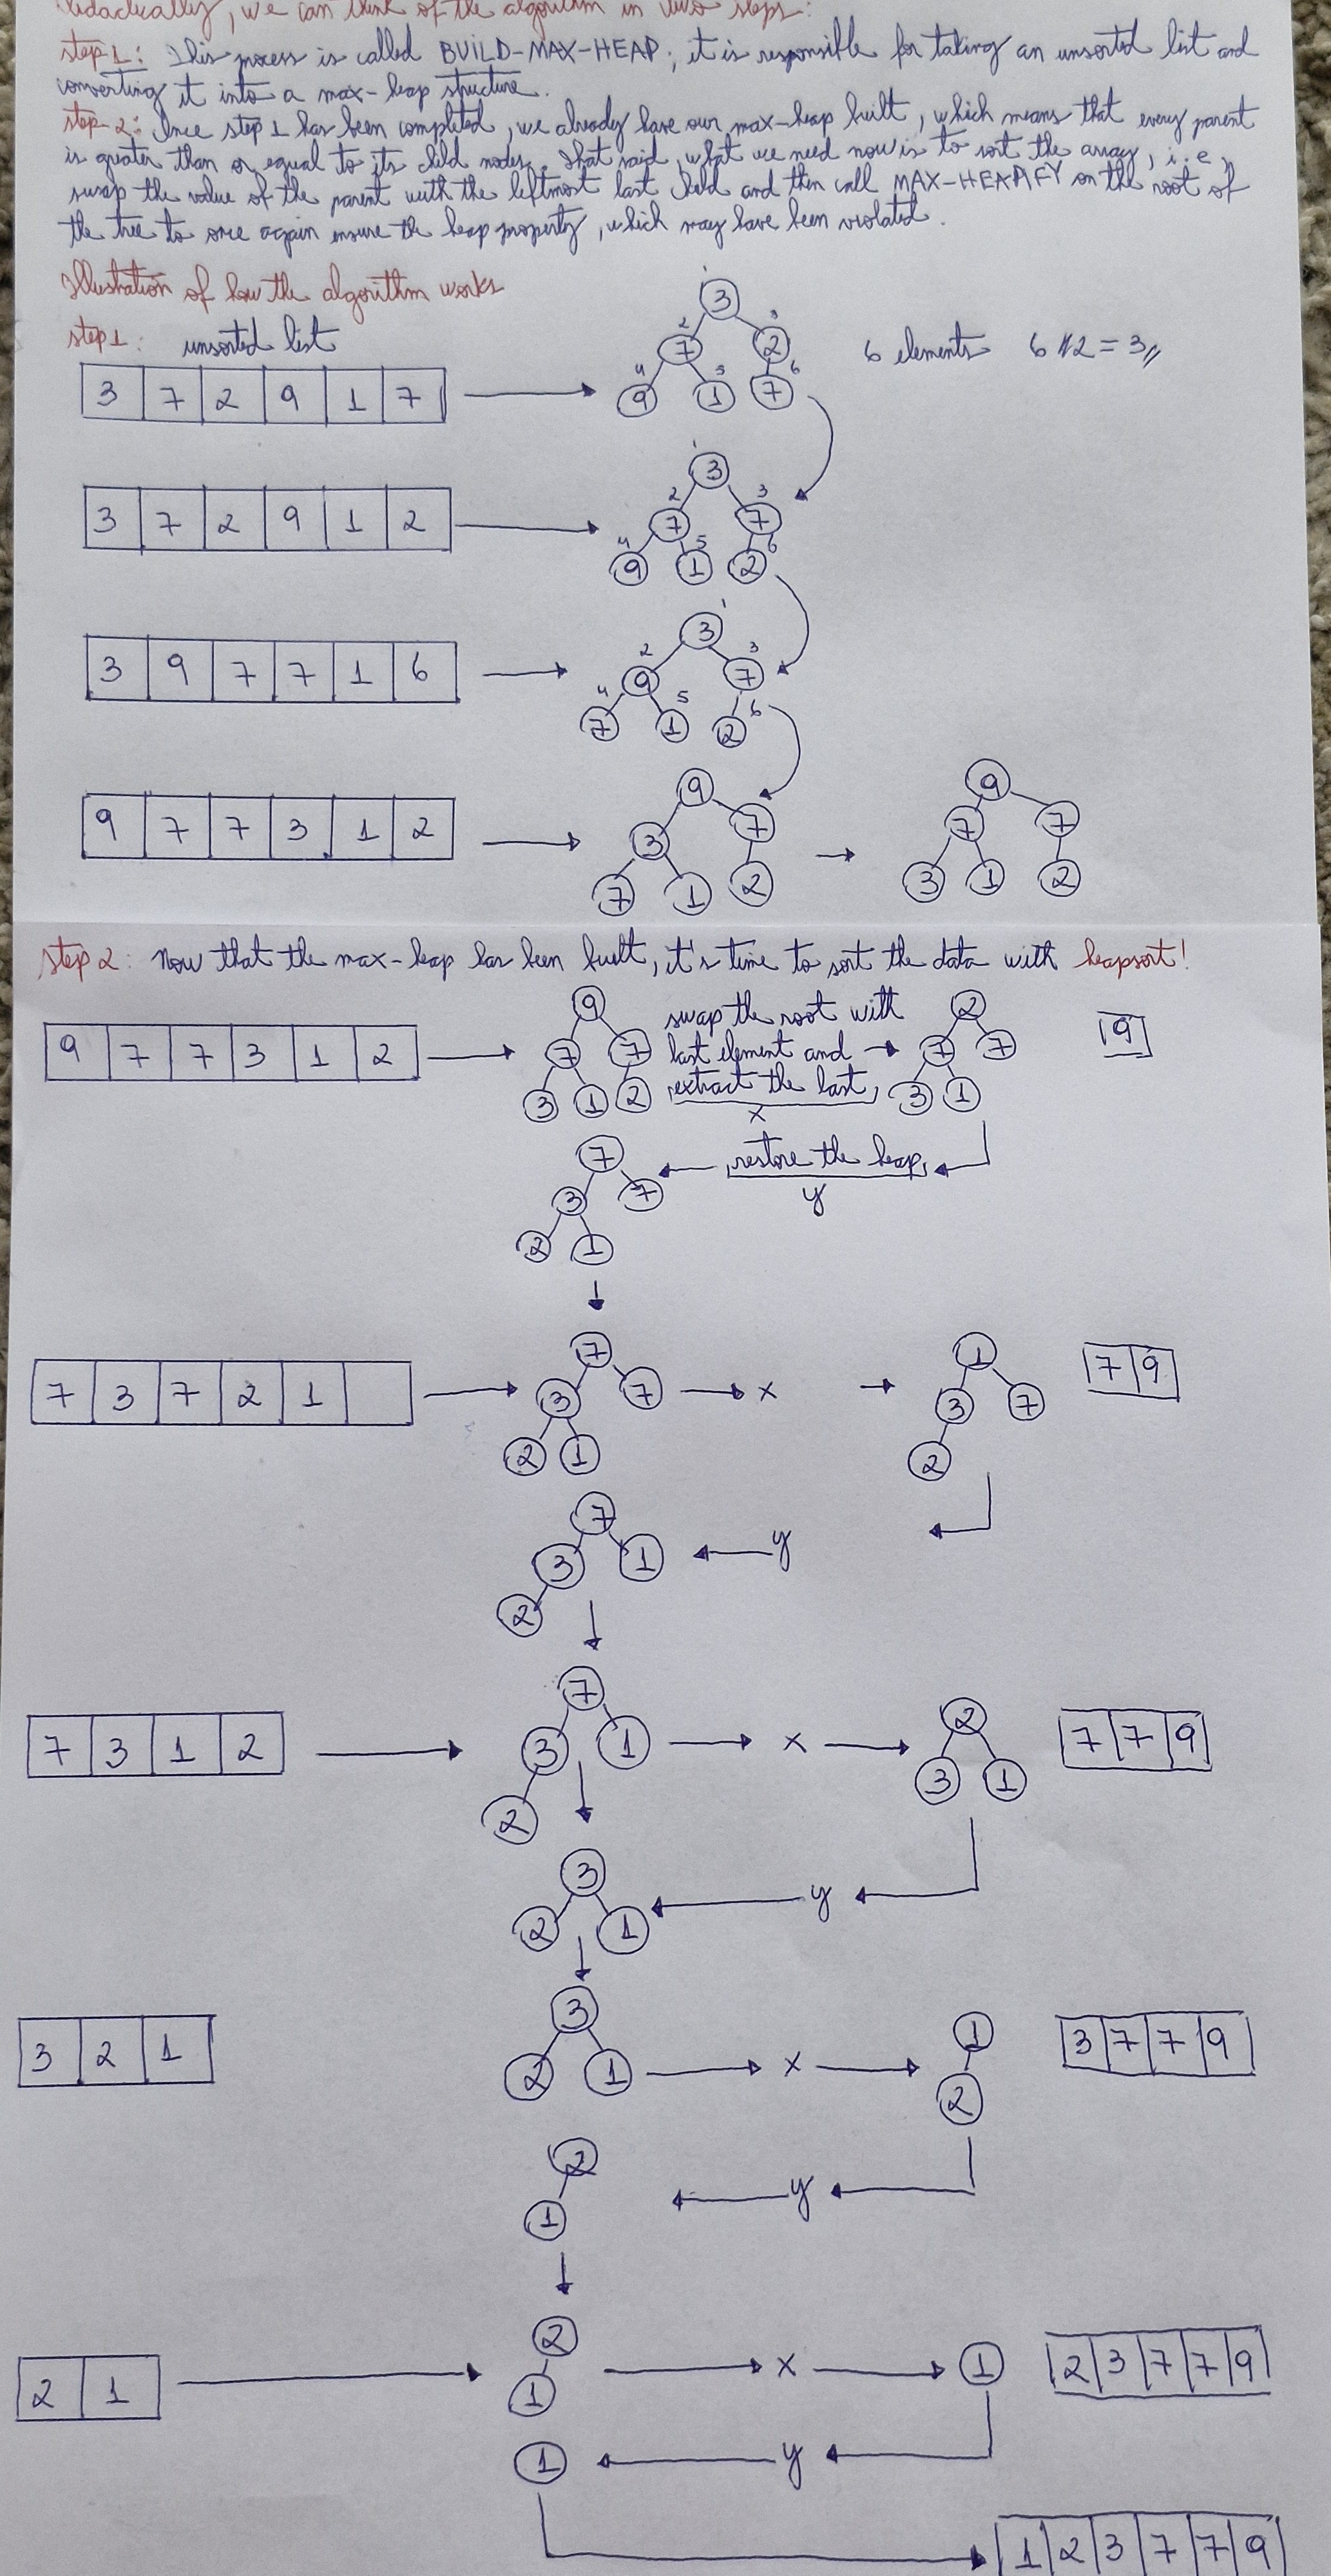 didactically, we can think of the algorithm in two steps:
step 1: This process is called BUILD-MAX-HEAP; it is responsible for taking an unsorted list and
converting it into a max-heap structure.
step 2: Once step 1 has been completed, we already have our max-heap built, which means that every parent
is greater than or equal to its child nodes. That said, what we need now is to sort the array, i.e.,
swap the value of the parent with the leftmost last child and then call MAX-HEAPIFY on the root of
the tree to once again ensure the heap property, which may have been violated.
Illustration of how the algorithm works
step 1: unsorted list
3 7 2 9 1 7
1 3
2 7 3 2
4 9 5 1 6 7
6 elements 6//2 = 3//
3 7 2 9 1 2
1 3
2 7 3 7
4 9 5 1 6 2
3 9 7 7 1 6
1 3
2 9 3 7
4 7 5 1 6 2
9 7 7 3 1 2
9
3 7
7 1 2
9
7 7
3 1 2
step 2: Now that the max-heap has been built, it's time to sort the data with heapsort!
9 7 7 3 1 2
9
7 7
3 1 2
swap the root with
last element and
extract the last
x
2
7 7
3 1
9
restore the heap
y
7
3 7
2 1
7 3 7 2 1
7
3 7
2 1
x
1
3 7
2
7 9
y
7
3 1
2
7 3 1 2
7
3 1
2
x
2
3 1
7 7 9
y
3
2 1
3 2 1
3
2 1
x
1
2
3 7 7 9
y
2
1
2 1
2
1
x
1
2 3 7 7 9
y
1
1 2 3 7 7 9